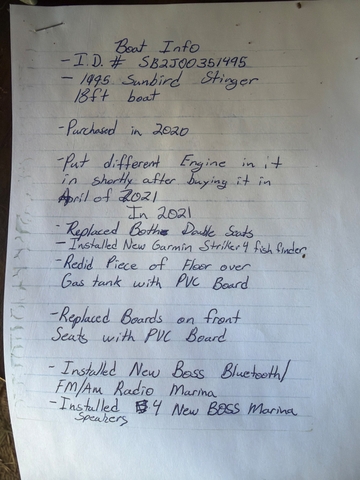 Boat Info
- I.D. # SB2J00351495
- 1995 Sunbird Stinger
18ft boat
- Purchased in 2020
- Put different Engine in it
in shortly after buying it in
April of 2021
In 2021
- Replaced Both Double Seats
- Installed New Garmin Striker 4 fish finder.
- Redid Piece of Floor over
Gas tank with PVC Board
- Replaced Boards on front
Seats with PVC Board
- Installed New Boss Bluetooth/
FM/Am Radio Marina
- Installed 4 New BOSS Marina
Speakers